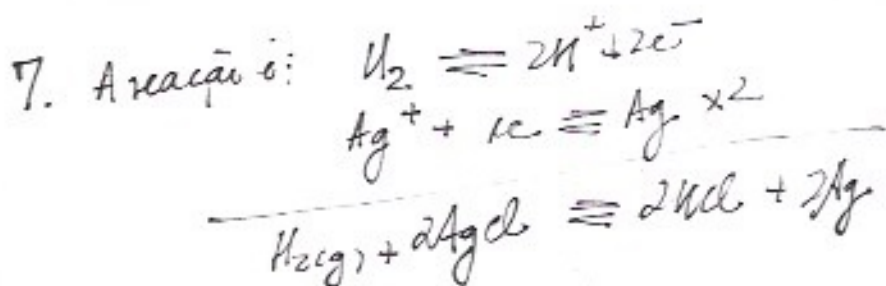 7. A reação é: H₂ ⇌ 2H⁺ + 2e⁻
Ag⁺ + 1e ⇌ Ag x2
H₂(g) + 2AgCl ⇌ 2HCl + 2Ag